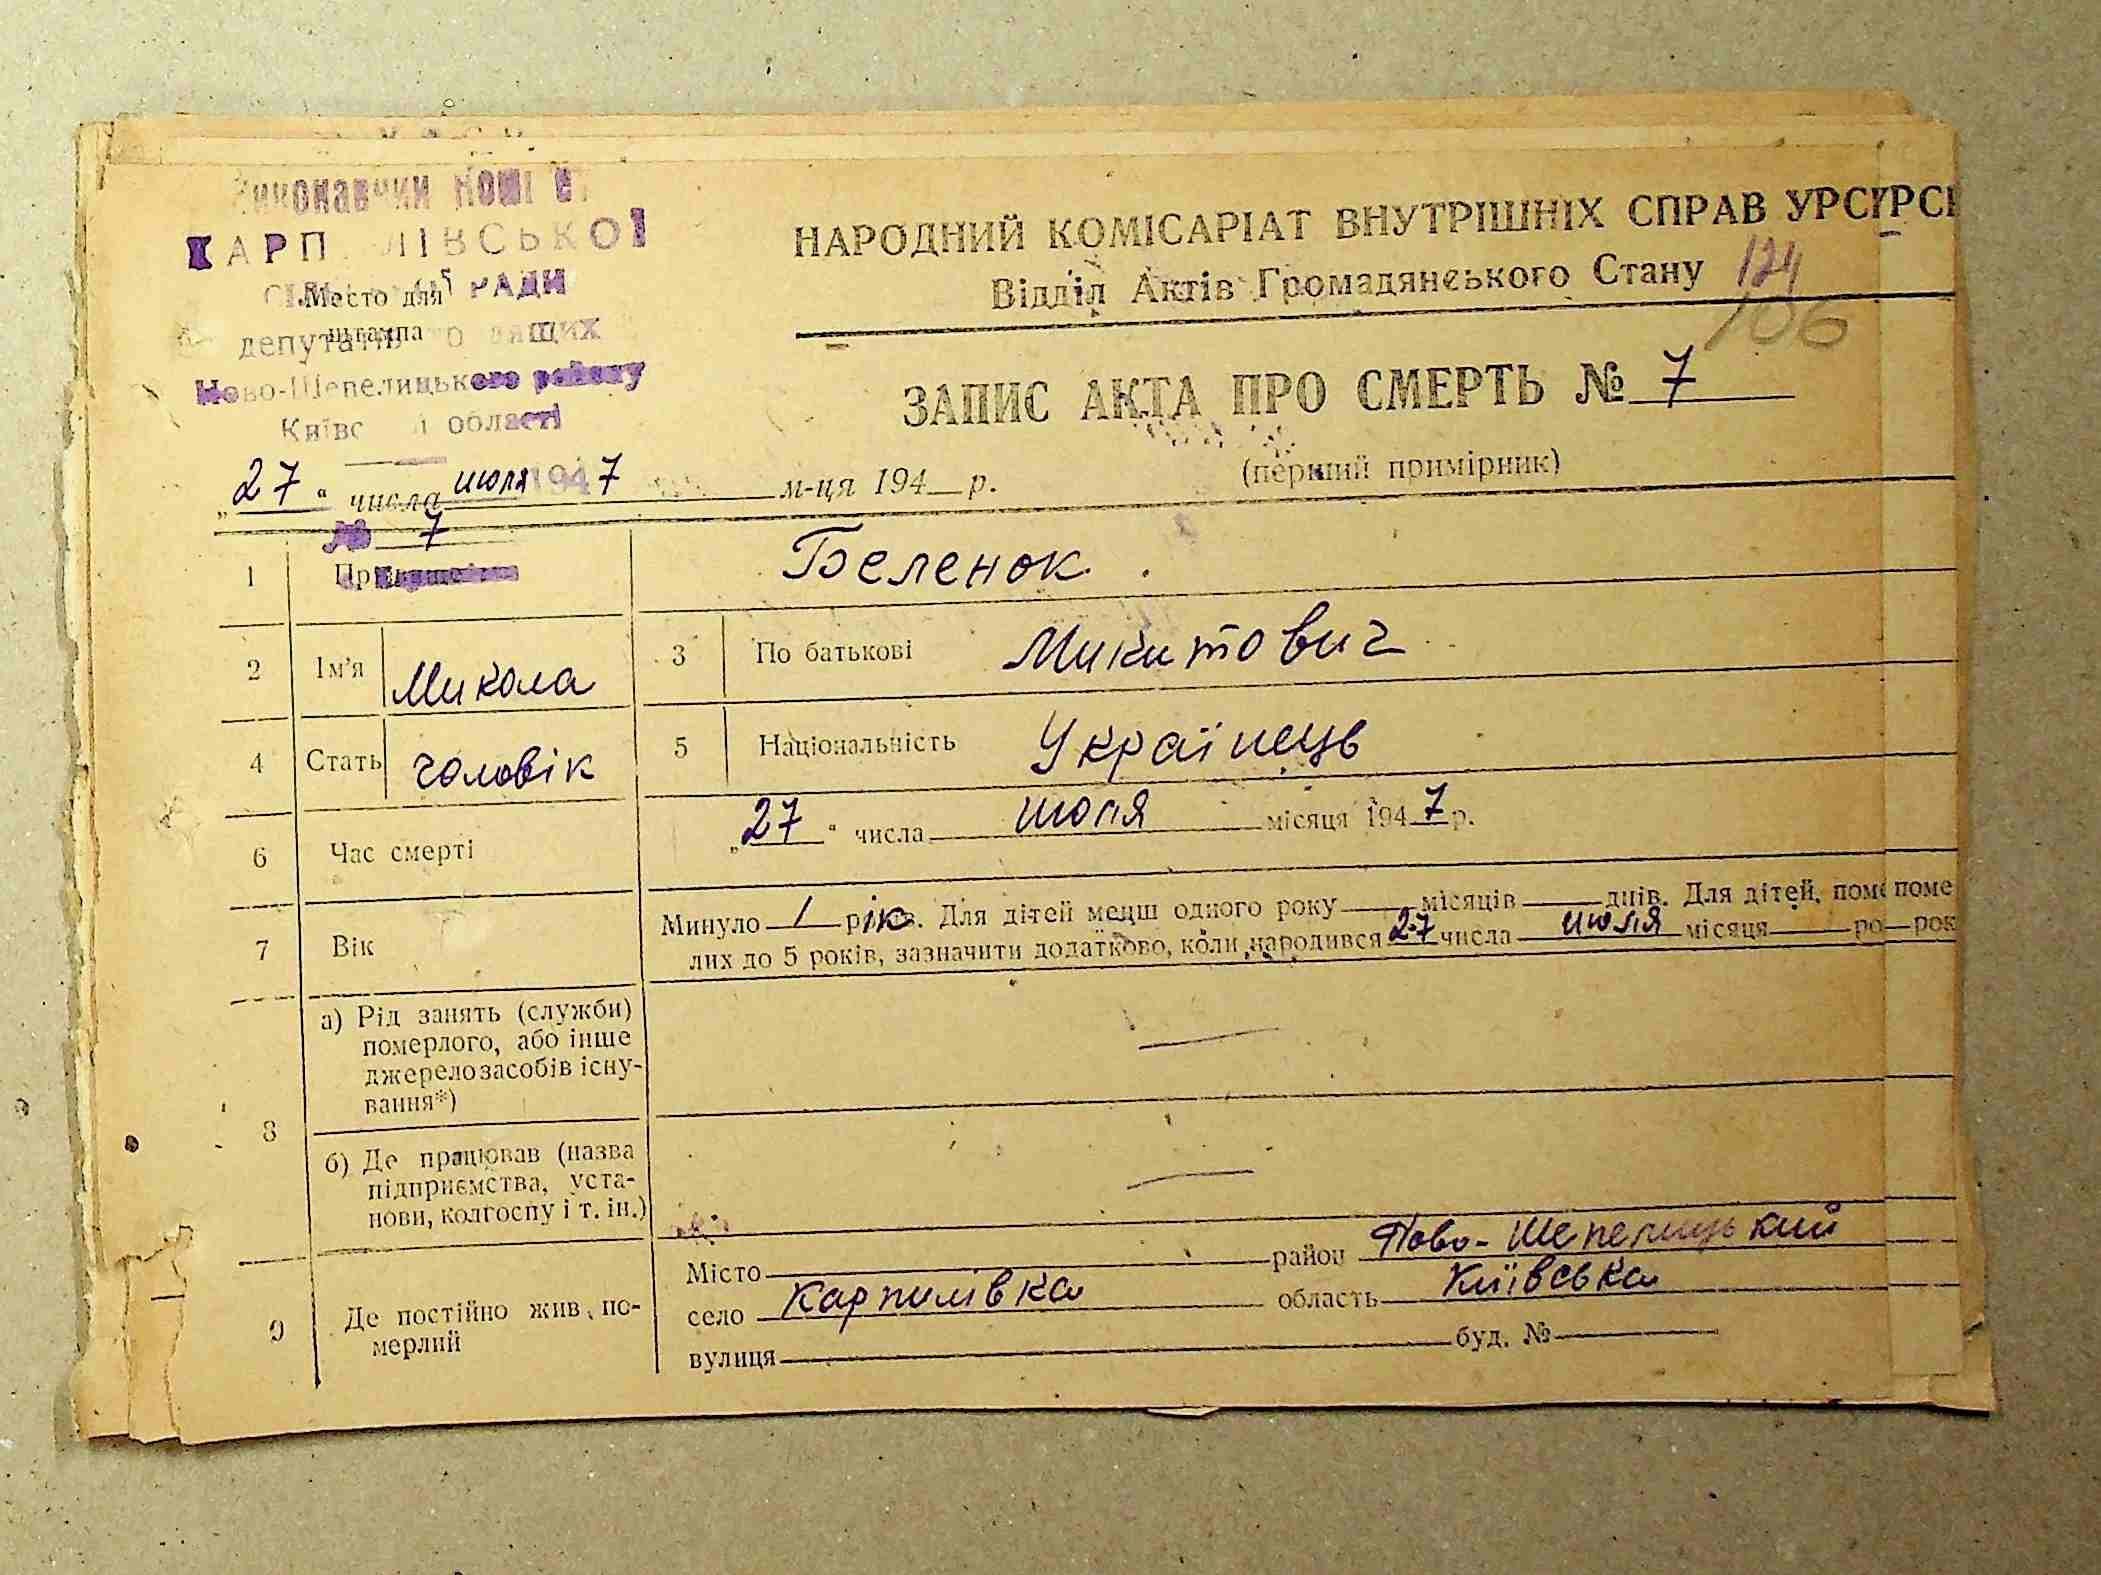 Виконавчий
КАРП ЛІВСЬКОЇ
РАДИ
Место для
штампа
депутатів
Ново-Шепелицького району
області
НАРОДНИЙ КОМІСАРІАТ ВНУТРІШНІХ СПРАВ УРСР
Відділ Актів Громадянського Стану 124
106
ЗАПИС АКТА ПРО СМЕРТЬ № 7
(перший примірник)
„27“ числа июля 1947 м-ця 194 р.
№ 7
1 Беленок
2 Ім'я Микола 3 По батькові Микитович
4 Стать чоловік 5 Національність Українець
6 Час смерті „27“ числа июля місяця 1947 р.
7 Вік Минуло 1 рік. Для дітей менш одного року місяців днів. Для дітей, поме
лих до 5 років, зазначити додатково, коли народився 27 числа июля місяця рок
8 а) Рід занять (служби)
померлого, або інше
джерело засобів існу-
вання*)
б) Де працював (назва
підприємства, уста-
нови, колгоспу і т. ін.)
9 Де постійно жив по-
мерлий
Місто район Ново-Шепелицький
село Карпилівка область Київська
вулиця буд. №